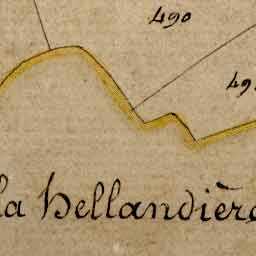 490
49
la hellandière